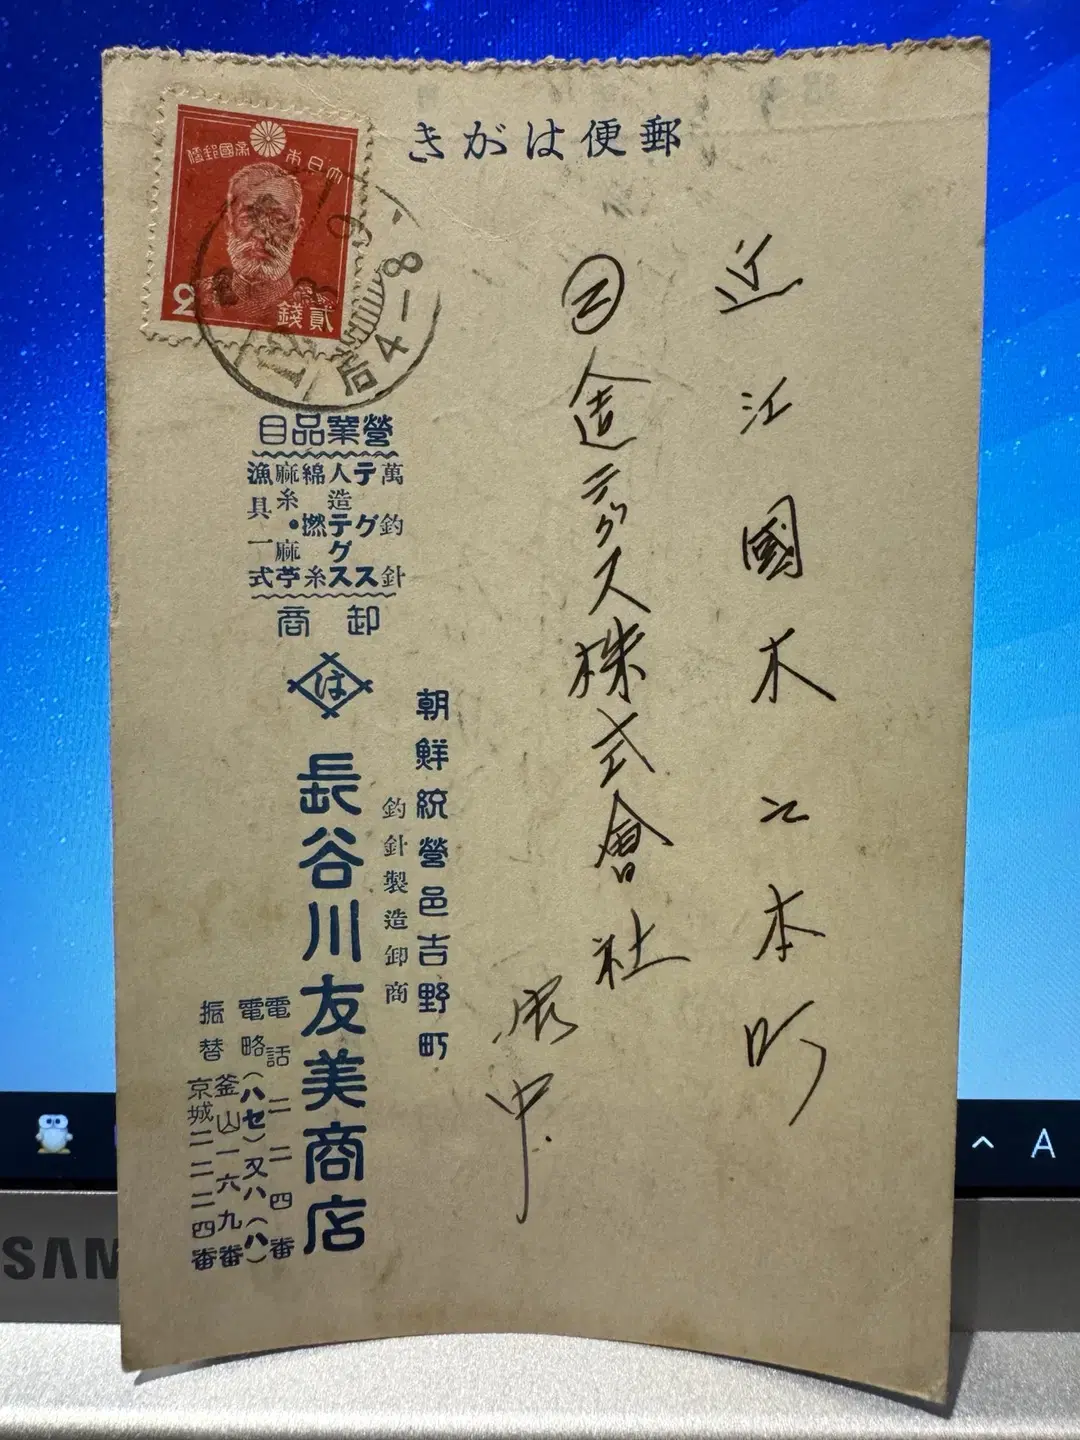 郵便はがき
大日本帝國郵便
2
貳錢
后4-8
近江國木之本町
人造テグス株式會社
御中
營業品目
萬釣針
テグス
人造テグス
綿撚糸
麻糸・麻苧
漁具一式
卸商
ほ
朝鮮統營邑吉野町
釣針製造卸商
長谷川友美商店
電話二二四番
電略(ハセ)又ハ(ハ)
振替釜山一六九番
京城二二二四番
SAM
A